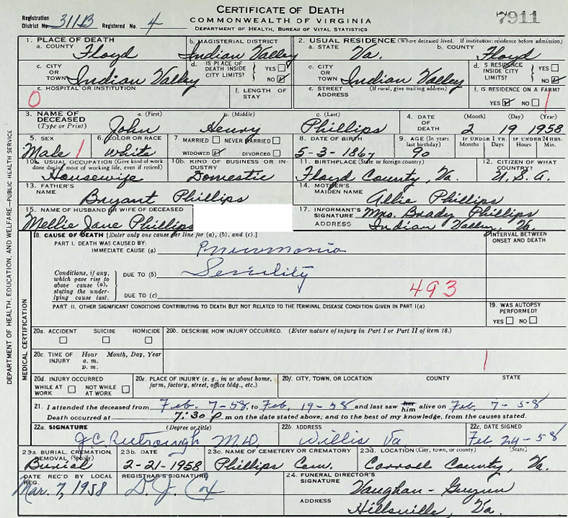 CERTIFICATE OF DEATH
COMMONWEALTH OF VIRGINIA
DEPARTMENT OF HEALTH, BUREAU OF VITAL STATISTICS
7911
Registration District No. 311B Registered No. 4
1. PLACE OF DEATH
a. COUNTY Floyd
b. MAGISTERIAL DISTRICT Indian Valley
2. USUAL RESIDENCE (Where deceased lived, if institution: residence before admission)
a. STATE Va. b. COUNTY Floyd
c. CITY OR TOWN Indian Valley
d. IS PLACE OF DEATH INSIDE CITY LIMITS? YES NO
c. CITY OR TOWN Indian Valley
d. IS RESIDENCE INSIDE CITY LIMITS? YES NO
e. HOSPITAL OR INSTITUTION
0
f. LENGTH OF STAY
e. STREET ADDRESS (If rural, give mailing address)
f. IS RESIDENCE ON A FARM? YES NO
3. NAME OF DECEASED (Type or Print)
a. (First) John
b. (Middle) Henry
c. (Last) Phillips
4. DATE OF DEATH (Month) (Day) (Year)
2 19 1958
5. SEX Male
6. COLOR OR RACE White
7. MARRIED NEVER MARRIED
WIDOWED DIVORCED
8. DATE OF BIRTH 5-3-1867
9. AGE (In years last birthday) 90
IF UNDER 1 YR. Months Days
IF UNDER 24 HRS. Hours Min.
10a. USUAL OCCUPATION (Give kind of work done during most of working life, even if retired) Housewife
10b. KIND OF BUSINESS OR INDUSTRY Domestic
11. BIRTHPLACE (State or foreign country) Floyd County, Va.
12. CITIZEN OF WHAT COUNTRY? U.S.A.
13. FATHER'S NAME Bryant Phillips
14. MOTHER'S MAIDEN NAME Allie Phillips
15. NAME OF HUSBAND or WIFE OF DECEASED Mellie Jane Phillips
17. INFORMANT'S SIGNATURE Mrs. Brady Phillips
ADDRESS Indian Valley, Va
18. CAUSE OF DEATH [Enter only one cause per line for (a), (b), and (c).]
INTERVAL BETWEEN ONSET AND DEATH
PART I. DEATH WAS CAUSED BY:
IMMEDIATE CAUSE (a) Pneumonia
Conditions, if any, which gave rise to above cause (a), stating the underlying cause last.
DUE TO (b) Senility
DUE TO (c)
493
PART II. OTHER SIGNIFICANT CONDITIONS CONTRIBUTING TO DEATH BUT NOT RELATED TO THE TERMINAL DISEASE CONDITION GIVEN IN PART I(a)
19. WAS AUTOPSY PERFORMED? YES NO
20a. ACCIDENT SUICIDE HOMICIDE
20b. DESCRIBE HOW INJURY OCCURRED. (Enter nature of injury in Part I or Part II of item 18.)
20c. TIME OF INJURY Hour a.m. p.m. Month, Day, Year
20d. INJURY OCCURRED WHILE AT WORK NOT WHILE AT WORK
20e. PLACE OF INJURY (e.g., in or about home, farm, factory, street, office bldg., etc.)
20f. CITY, TOWN, OR LOCATION COUNTY STATE
21. I attended the deceased from Feb. 7-58, to Feb. 19-58 and last saw him alive on Feb. 7-58
Death occurred at 7:30 p m on the date stated above; and to the best of my knowledge, from the causes stated.
22a. SIGNATURE (Degree or title) M.D.
22b. ADDRESS Willis Va
22c. DATE SIGNED Feb 24-58
23a. BURIAL, CREMATION, REMOVAL (Specify) Burial
23b. DATE 2-21-1958
23c. NAME OF CEMETERY OR CREMATORY Phillips Cem.
23d. LOCATION (City, town, or county) (State) Carroll County, Va.
DATE REC'D BY LOCAL REG. Mar. 7, 1958
REGISTRAR'S SIGNATURE D. J. Cox
24. FUNERAL DIRECTOR'S SIGNATURE Vaughan-Guynn
ADDRESS Hillsville, Va.
DEPARTMENT OF HEALTH, EDUCATION, AND WELFARE—PUBLIC HEALTH SERVICE
MEDICAL CERTIFICATION